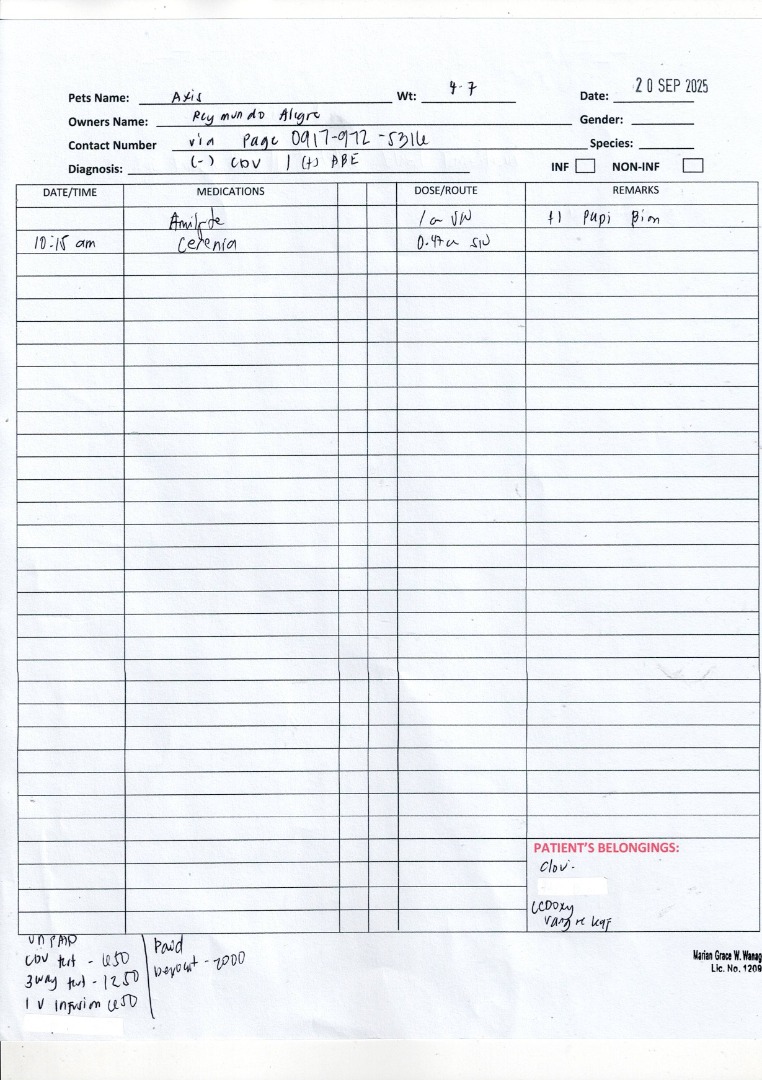 Pets Name: Axis Wt: 4.7 Date: 20 SEP 2025
Owners Name: Reymundo Alegre Gender:
Contact Number via Page 0917-972-5316 Species:
Diagnosis: (-) CDV | (+) ABE INF NON-INF
DATE/TIME MEDICATIONS DOSE/ROUTE REMARKS
1cc SIV #1 Papi Bion
10:15 am Cerenia 0.47cc SIV
PATIENT'S BELONGINGS:
Clov-
LCDoxy
UNPAID
CDV test - 650
3way test - 1250
IV Infusion 650
Paid
Deposit - 2000
Marian Grace W. Wanag
Lic. No. 1209